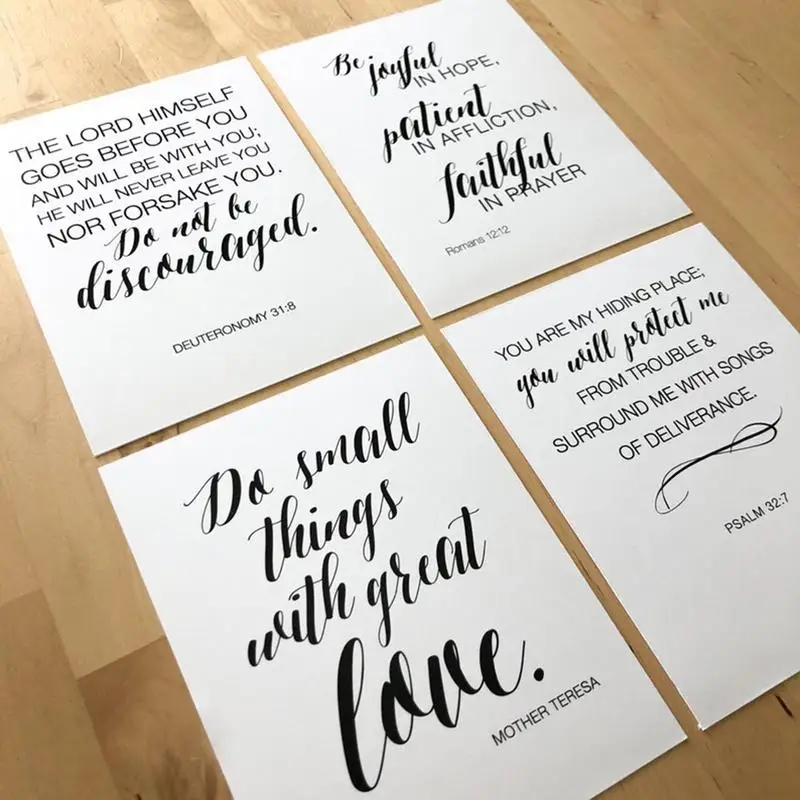 THE LORD HIMSELF
GOES BEFORE YOU
AND WILL BE WITH YOU;
HE WILL NEVER LEAVE YOU
NOR FORSAKE YOU.
Do not be
discouraged.
DEUTERONOMY 31:8
Be joyful
IN HOPE,
patient
IN AFFLICTION,
faithful
IN PRAYER
Romans 12:12
Do small
things
with great
love.
MOTHER TERESA
YOU ARE MY HIDING PLACE;
you will protect me
FROM TROUBLE &
SURROUND ME WITH SONGS
OF DELIVERANCE.
PSALM 32:7